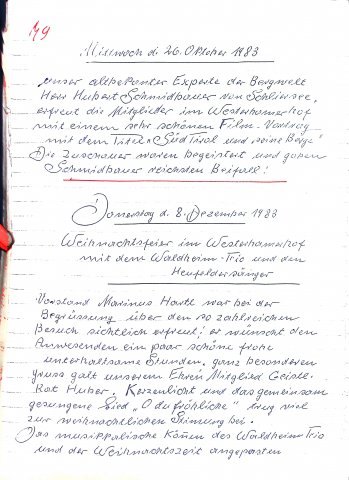 49
Mittwoch d. 26. Oktober 1983
Unser altbekanter Experte der Bergwelt
Herr Hubert Schmidbauer von Schliersee,
erfreut die Mitglieder im Westerhamerhof
mit einem sehr schönen Film-Vortrag
mit dem Titel "Süd Tirol und seine Berge"
Die Zuschauer waren begeistert und gaben
Schmidbauer reichsten Beifall!
Donnerstag d. 8. Dezember 1983
Weihnachtsfeier im Westerhamerhof
mit dem Waldheim-Trio und den
Heufeldersänger
Vorstand Maximus Hartl war bei der
Begrüssung über den so zahlreichen
Besuch sichtlich erfreut! er wünscht den
Anwesenden ein paar schöne frohe
unterhaltsame Stunden, ganz besonderen
gruss galt unserem Ehren Mitglied Geistl.
Rat Huber. Kerzenlicht und das gemeinsam
gesungene Lied "O du fröhliche" trug viel
zur weihnachtlichen Stimung bei.
Das musikalische Könen des Waldheim-Trio
und der Weihnachtszeit angepassten